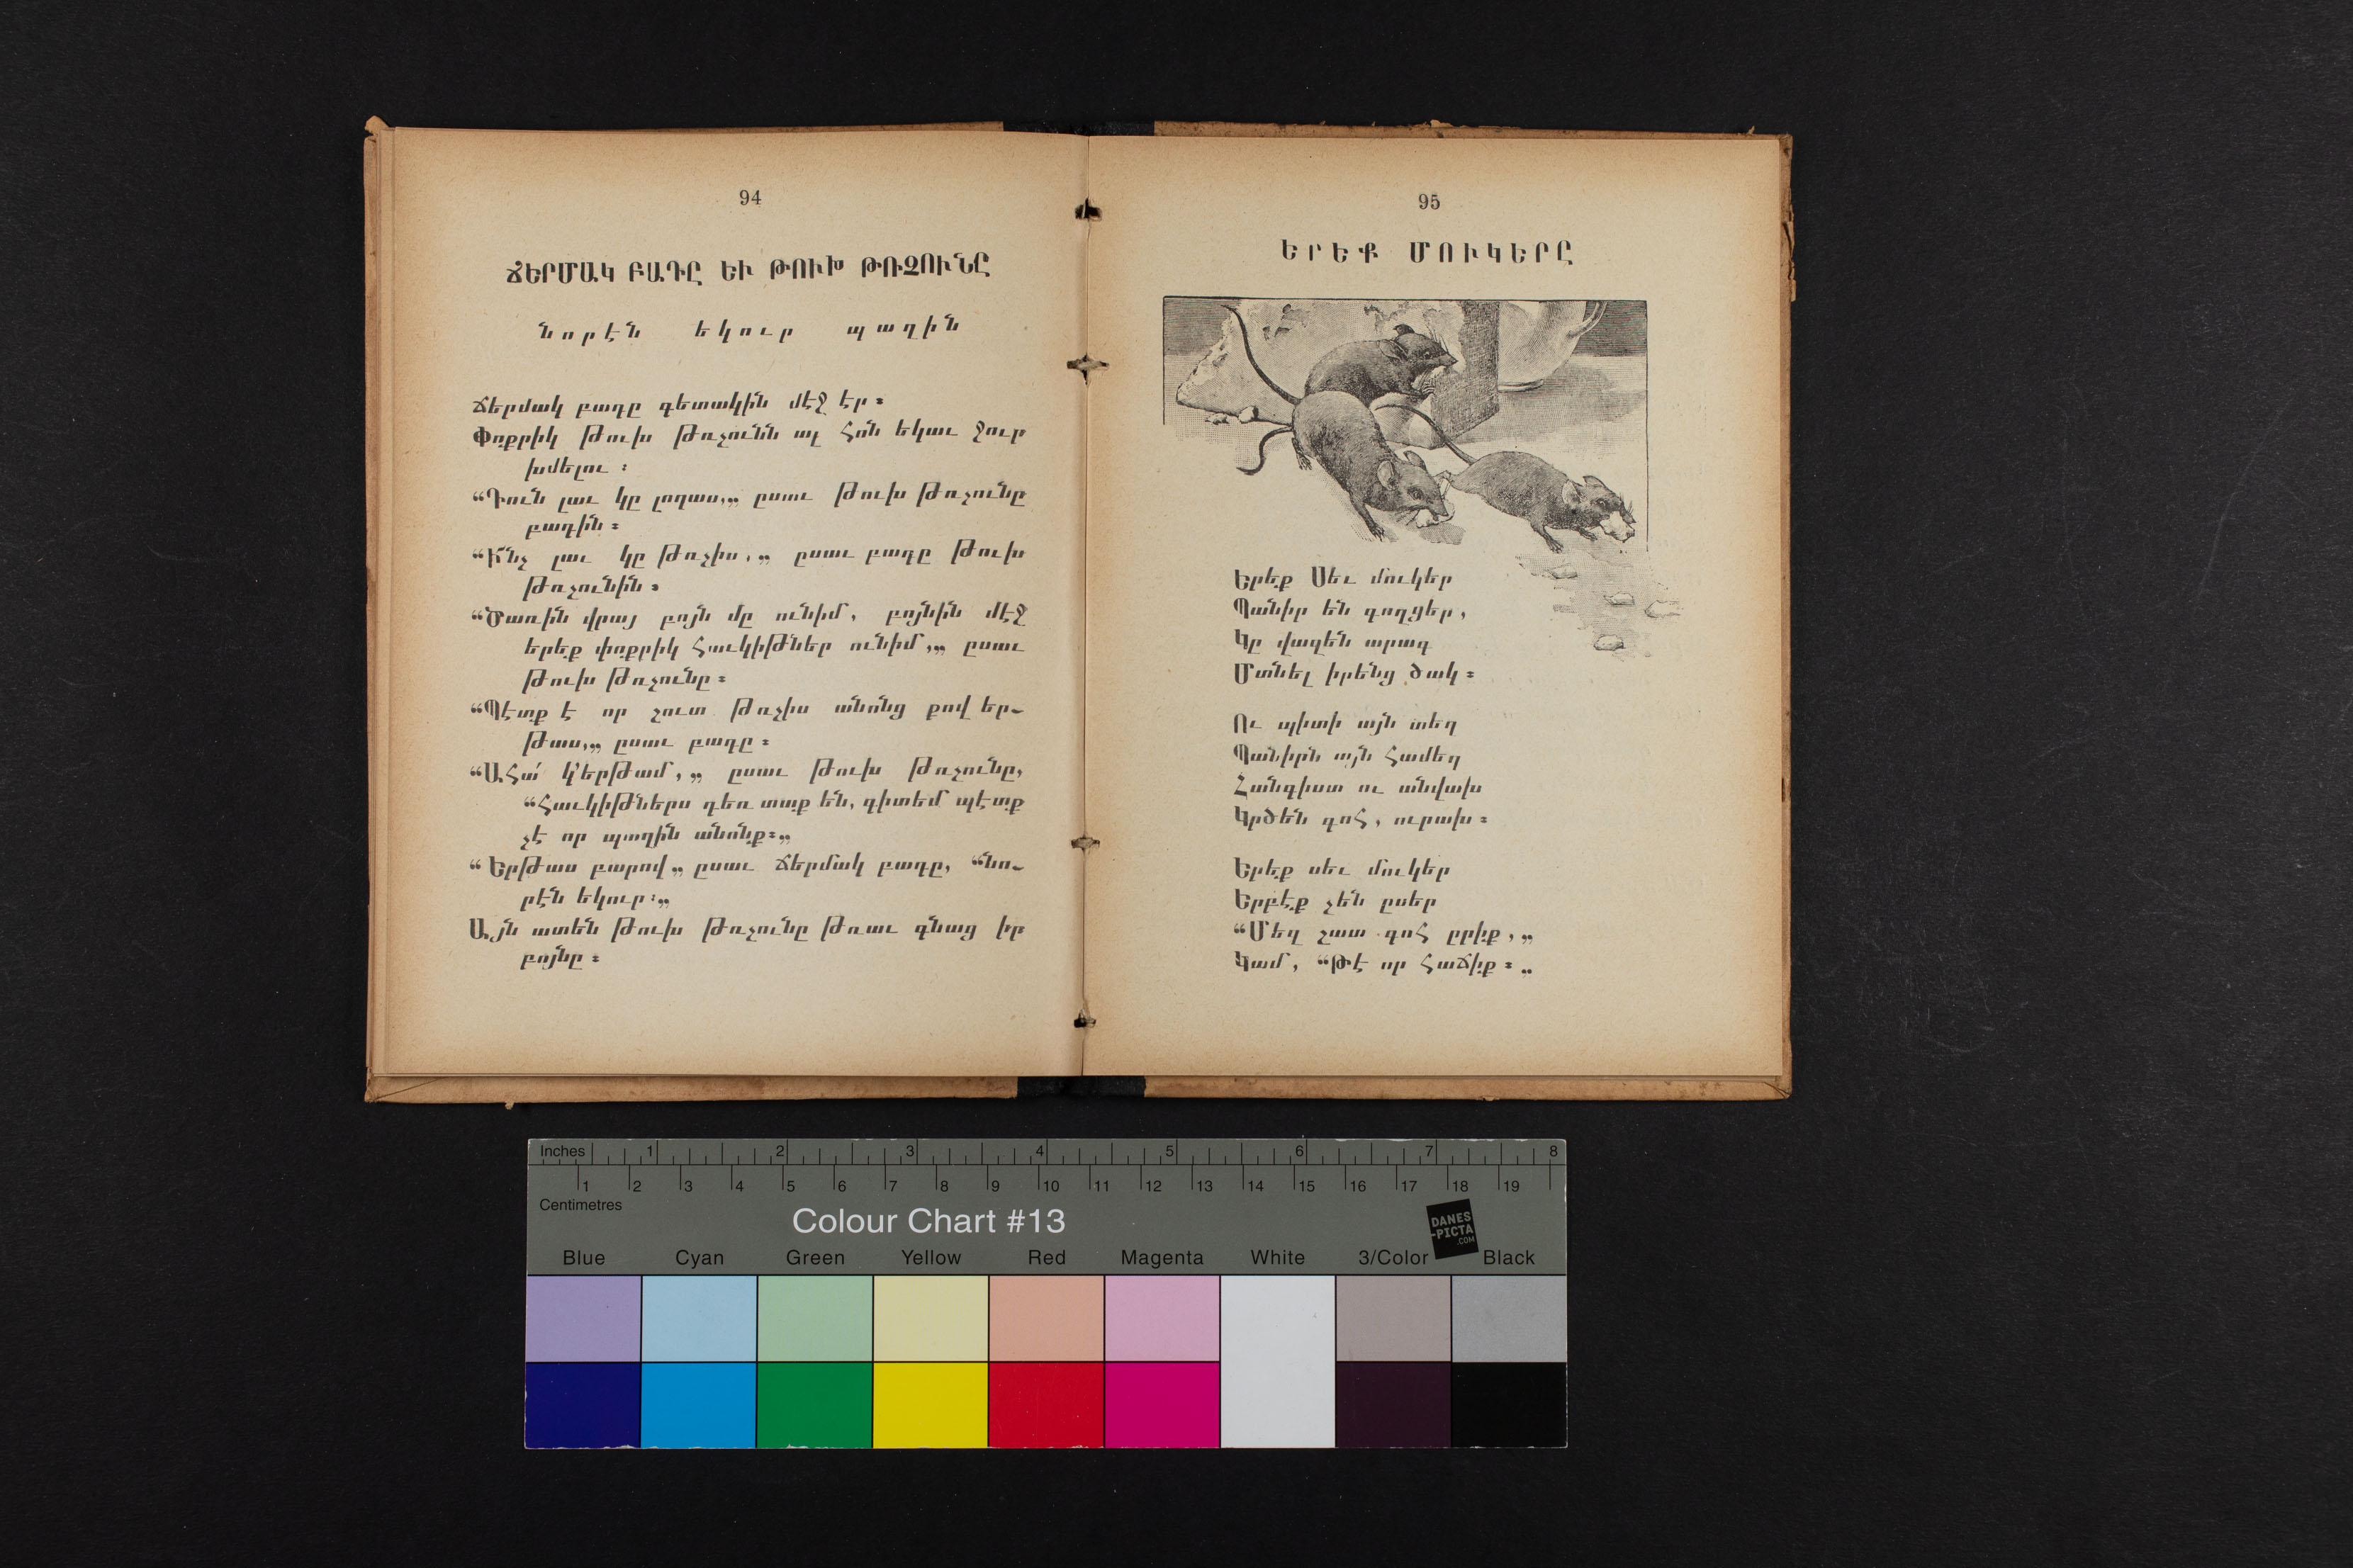 94
ՃԵՐՄԱԿ ԲԱԴԸ ԵՒ ԹՈՒԽ ԹՌՉՈՒՆԸ
նորէն եկուր պաղին
Ճերմակ բադը գետակին մէջ էր։
Փոքրիկ թուխ թռչունն ալ հոն եկաւ ջուր
խմելու։
“Դուն լաւ կը լողաս,„ ըսաւ թուխ թռչունը
բադին։
“Ի՜նչ լաւ կը թռչիս,„ ըսաւ բադը թուխ
թռչունին։
“Ծառին վրայ բոյն մը ունիմ, բոյնին մէջ
երեք փոքրիկ հաւկիթներ ունիմ,„ ըսաւ
թուխ թռչունը։
“Պէտք է որ շուտ թռչիս անոնց քով եր-
թաս,„ ըսաւ բադը։
“Ահա՛ կ՚երթամ,„ ըսաւ թուխ թռչունը,
“Հաւկիթներս դեռ տաք են, գիտեմ պէտք
չէ որ պաղին անոնք։„
“Երթաս բարով„ ըսաւ ճերմակ բադը, “նո-
րէն եկուր։„
Այն ատեն թուխ թռչունը թռաւ գնաց իր
բոյնը։
95
ԵՐԵՔ ՄՈՒԿԵՐԸ
Երեք Սեւ մուկեր
Պանիր են գողցեր,
Կը վազեն արագ
Մտնել իրենց ծակ։
Ու պիտի այն տեղ
Պանիրն այն համեղ
Հանգիստ ու անվախ
Կրծեն գոհ, ուրախ։
Երեք սեւ մուկեր
Երբէք չեն ըսեր
“Մեզ շատ գոհ ըրիք,„
Կամ, “թէ որ հաճիք։„
Inches 1 2 3 4 5 6 7 8
1 2 3 4 5 6 7 8 9 10 11 12 13 14 15 16 17 18 19
Centimetres
Colour Chart #13
DANES
-PICTA
.COM
Blue Cyan Green Yellow Red Magenta White 3/Color Black